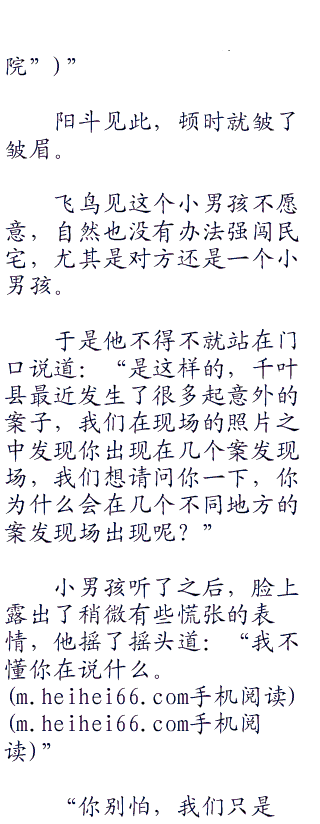 院”)”
阳斗见此，顿时就皱了
皱眉。
飞鸟见这个小男孩不愿
意，自然也没有办法强闯民
宅，尤其是对方还是一个小
男孩。
于是他不得不就站在门
口说道：“是这样的，千叶
县最近发生了很多起意外的
案子，我们在现场的照片之
中发现你出现在几个案发现
场，我们想请问你一下，你
为什么会在几个不同地方的
案发现场出现呢？”
小男孩听了之后，脸上
露出了稍微有些慌张的表
情，他摇了摇头道：“我不
懂你在说什么。
(m.heihei66.com手机阅读)
(m.heihei66.com手机阅
读)”
“你别怕，我们只是